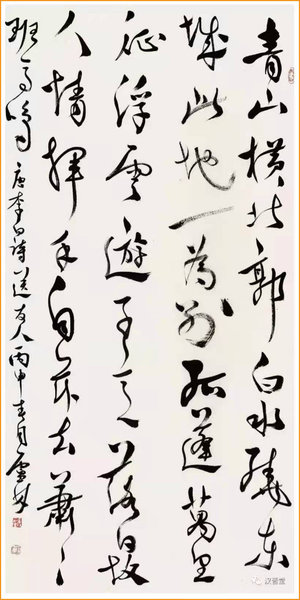 青山橫北郭白水繞東
城此地一為別孤蓬萬里
征浮雲遊子意落日故
人情揮手自茲去蕭〻
班馬鳴 唐李白詩送友人丙申春月